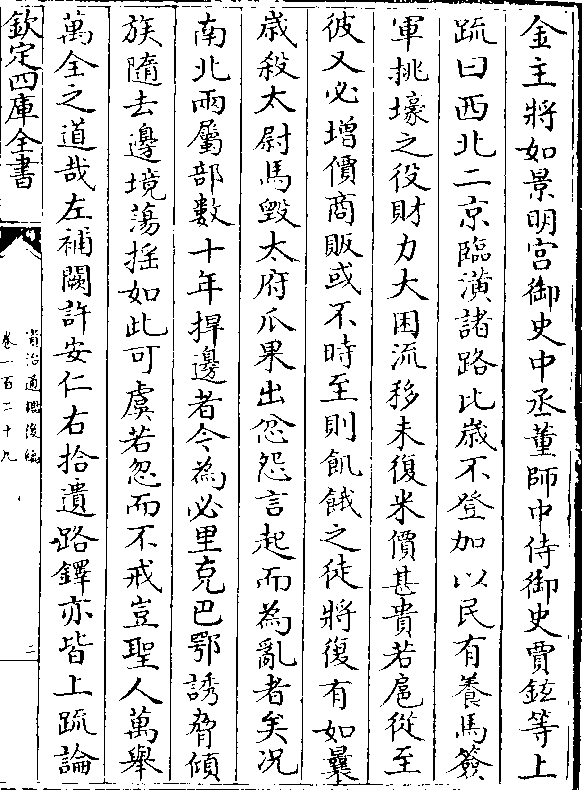 金主將如景明宫御史中丞董師中侍御史賈鉉等上
疏曰西北二京臨潢諸路比歳不登加以民有養馬簽
軍挑壕之役財力大困流移未復米價甚貴若扈從至
彼又必增價商販或不時至則飢餓之徒將復有如曩
歳殺太尉馬毀太府瓜果出忿怨言起而為亂者矣况
南北兩屬部數十年捍邊者今為必里克巴鄂誘脅傾
族隨去邊境蕩揺如此可虞若忽而不戒豈聖人萬舉
萬全之道哉左補闕許安仁右拾遺路鐸亦皆上疏論
欽定四庫全書
資治通鑑後編
卷一百二十九
二